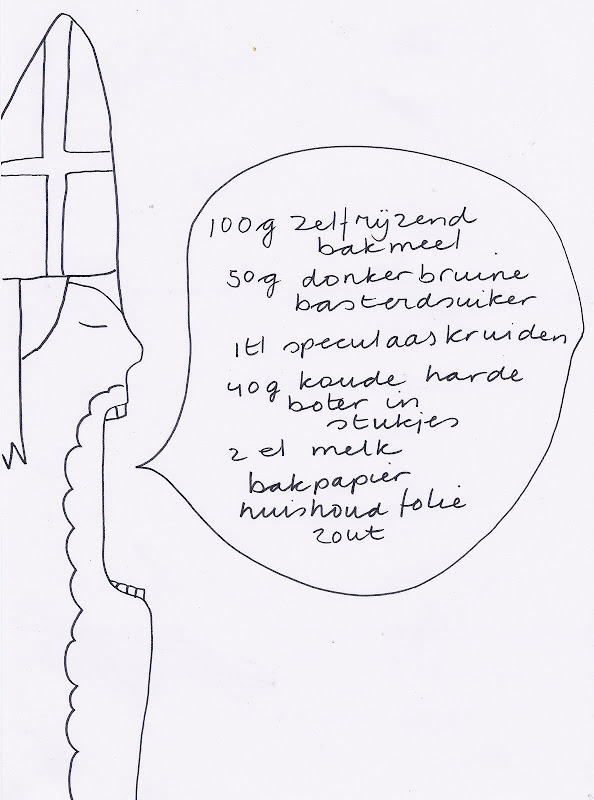 100g zelfrijzend
bakmeel
50g donkerbruine
basterdsuiker
1tl speculaaskruiden
40g koude harde
boter in
stukjes
2 el melk
bakpapier
huishoud folie
zout